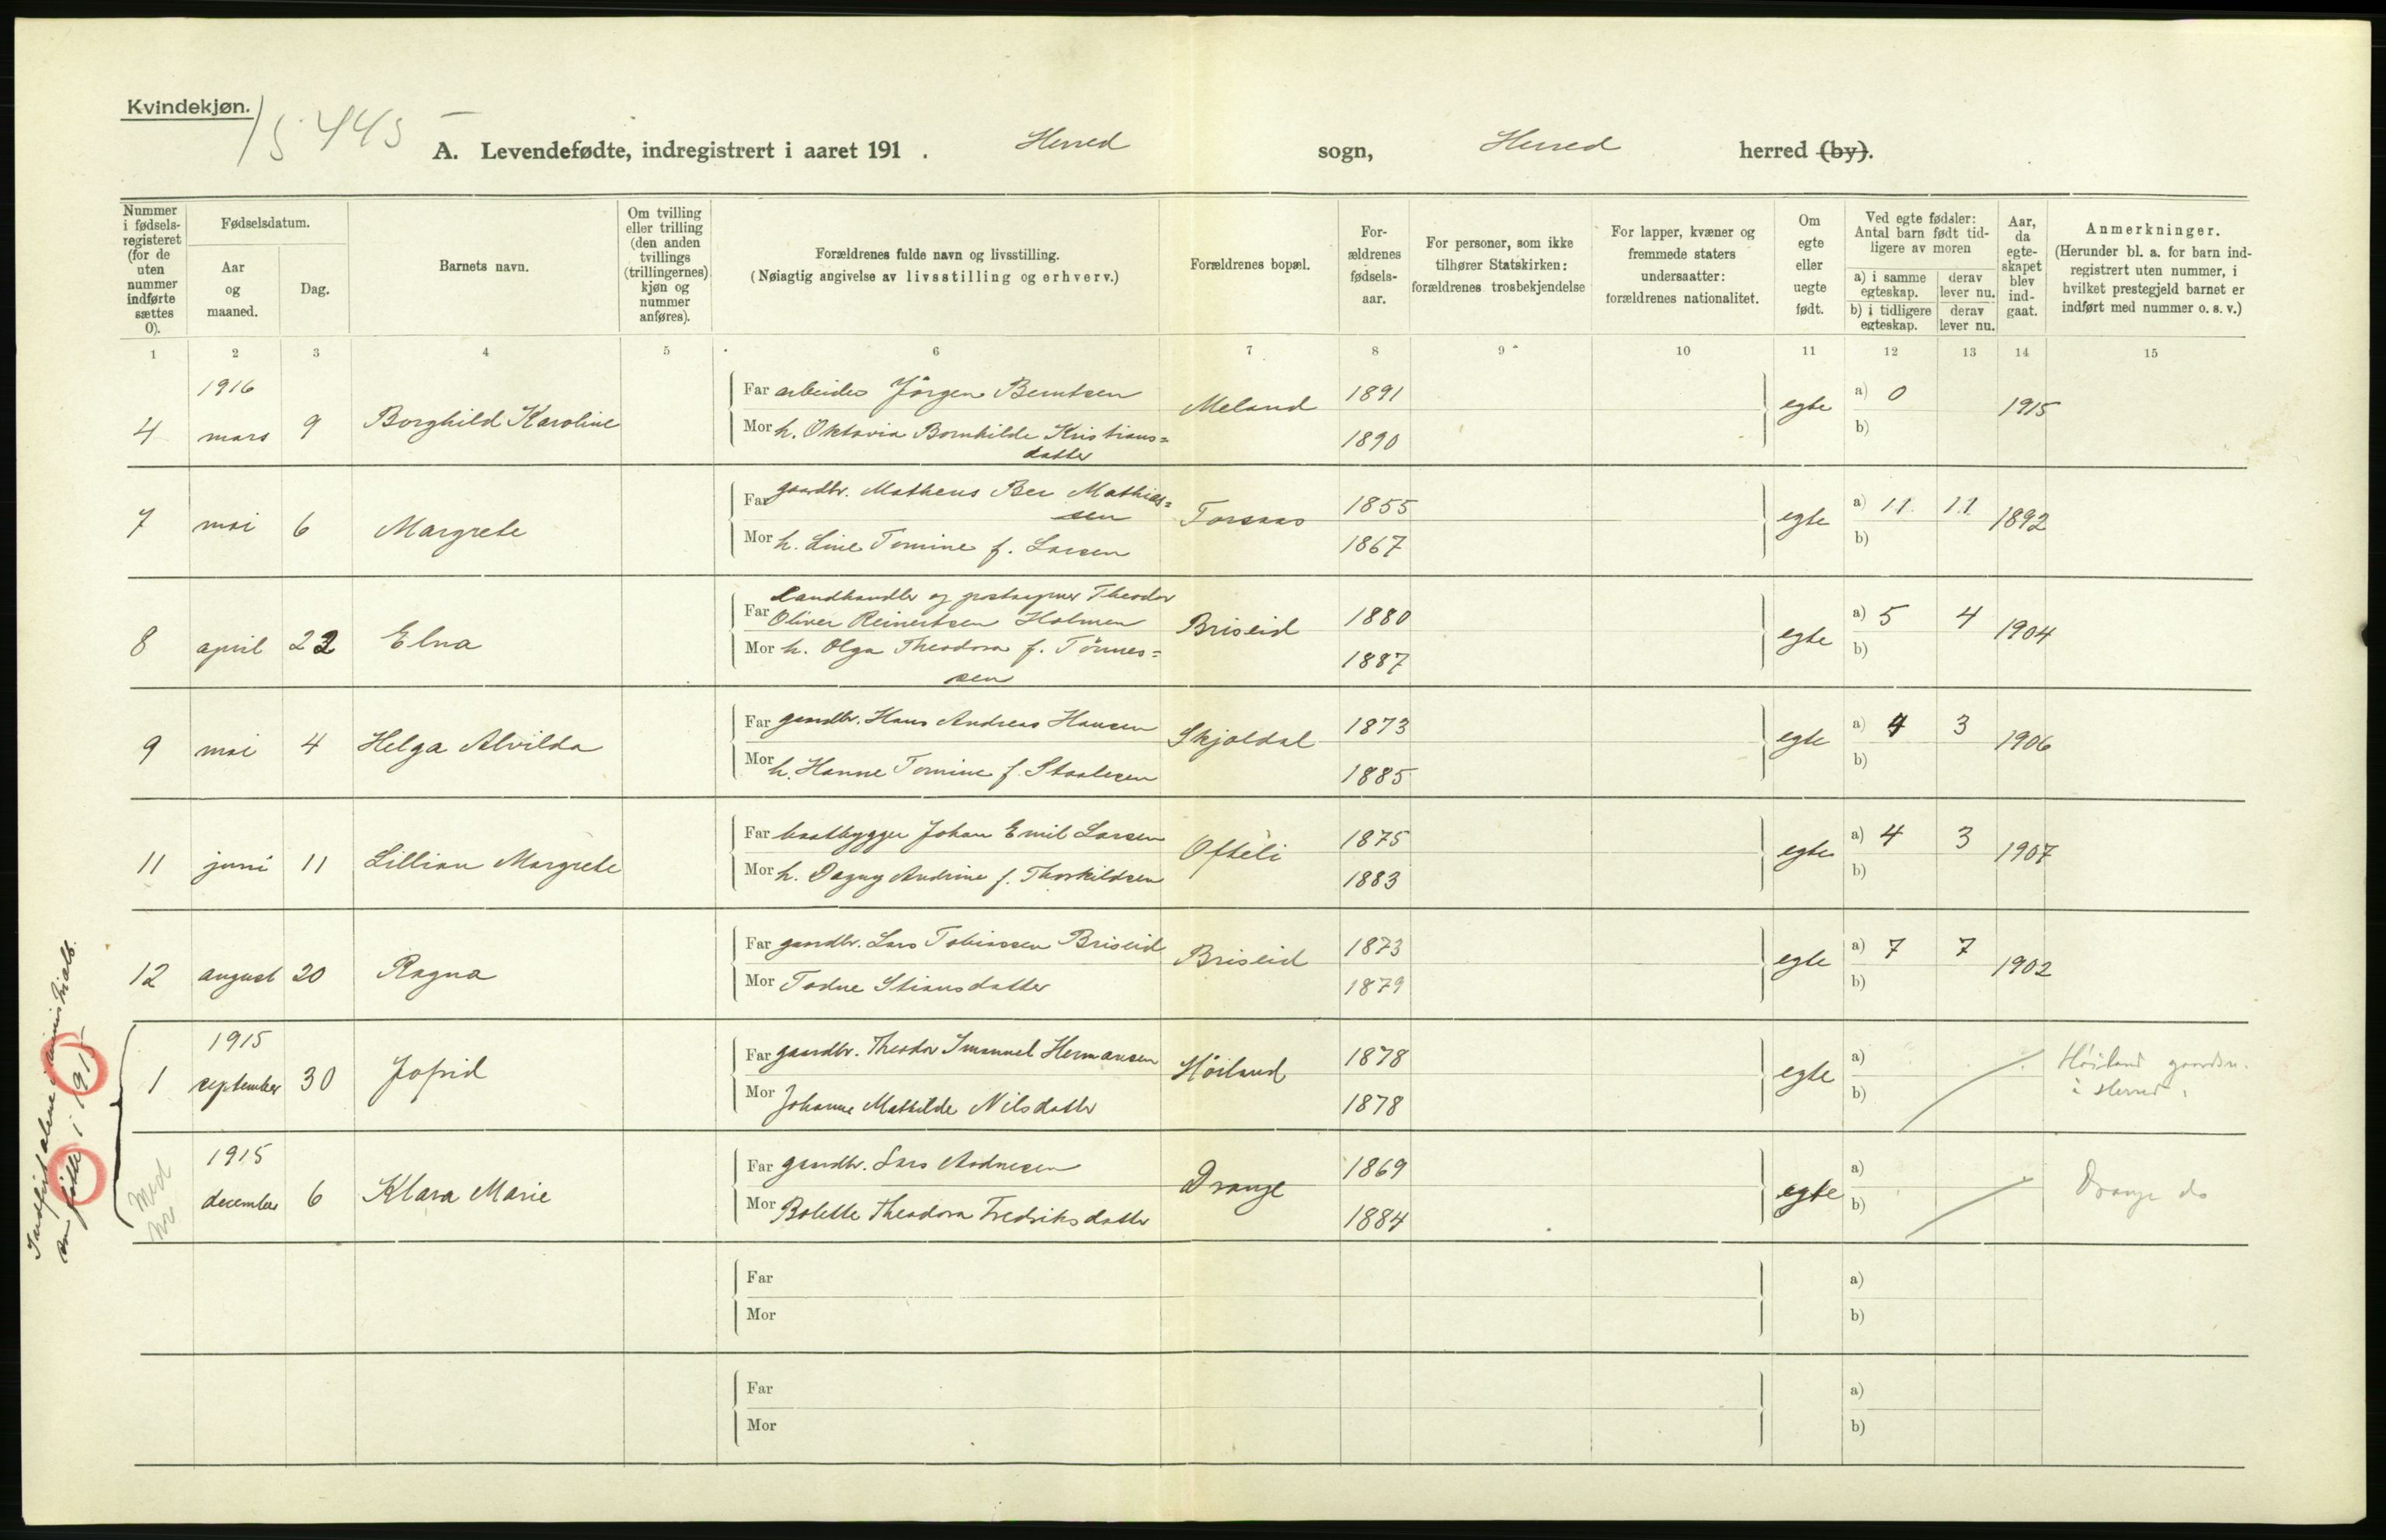 Kvindekjøn.
15443
A. Levendefødte, indregistrert i aaret 191 . Herred sogn, Herred herred (by).
Nummer i fødselsregisteret (for de uten nummer indførte sættes 0).
Fødselsdatum.
Aar og maaned.
Dag.
Barnets navn.
Om tvilling eller trilling (den anden tvillings (trillingernes) kjøn og nummer anføres).
Forældrenes fulde navn og livsstilling.
(Nøiagtig angivelse av livsstilling og erhverv.)
Forældrenes bopæl.
For-
ældrenes
fødsels-
aar.
For personer, som ikke
tilhører Statskirken:
forældrenes trosbekjendelse
For lapper, kvæner og
fremmede staters
undersaatter:
forældrenes nationalitet.
Om
egte
eller
uegte
født.
Ved egte fødsler:
Antal barn født tid-
ligere av moren
a) i samme egteskap.
derav lever nu.
b) i tidligere egteskap.
derav lever nu.
Aar,
da
egte-
skapet
blev
ind-
gaat.
Anmerkninger.
(Herunder bl. a. for barn ind-
registrert uten nummer, i
hvilket prestegjeld barnet er
indført med nummer o. s. v.)
1 2 3 4 5 6 7 8 9 10 11 12 13 14 15
1916
4 mars 9 Borghild Karoline
Far arbeider Jörgen Berntsen Meland 1891 egte a) 0 1915
Mor h. Oktavia Bornhilde Kristians=
datter 1890 b)
7 mai 6 Margrete
Far gaardbr. Matheus Ber Mathias=
sen Torsaas 1855 egte a) 11 11 1892
Mor h. Line Tomine f. Larsen 1867 b)
8 april 22 Elna
Far Landhandler og postaapner Theodor
Oliver Reinertsen Holmen Briseid 1880 egte a) 5 4 1904
Mor h. Olga Theodora f. Tönnes=
sen 1887 b)
9 mai 4 Helga Alvilda
Far gaardbr. Hans Andreas Hansen Skjoldal 1873 egte a) 4 3 1906
Mor h. Hanne Tomine f. Staalesen 1885 b)
11 juni 11 Lillian Margrete
Far baatbygger Johan Emil Larsen Ofteli 1875 egte a) 4 3 1907
Mor h. Dagny Andrine f. Thorkildsen 1883 b)
12 august 20 Ragna
Far gaardbr. Lars Tobiassen Briseid Briseid 1873 egte a) 7 7 1902
Mor Todne Stiansdatter 1879 b)
1915
1 september 30 Jofrid
Far gaardbr. Theodor Imanuel Hermansen Höiland 1878 egte a) Höiland gaardsn.
i Herred.
Mor Johanne Mathilde Nilsdatter 1878 b)
1915
december 6 Klara Marie
Far gaardbr. Lars Andersen Drange 1869 egte a) Drange do
Mor Bolette Theodora Fredriksdatter 1884 b)
Far a)
Mor b)
Far a)
Mor b)
i 1915